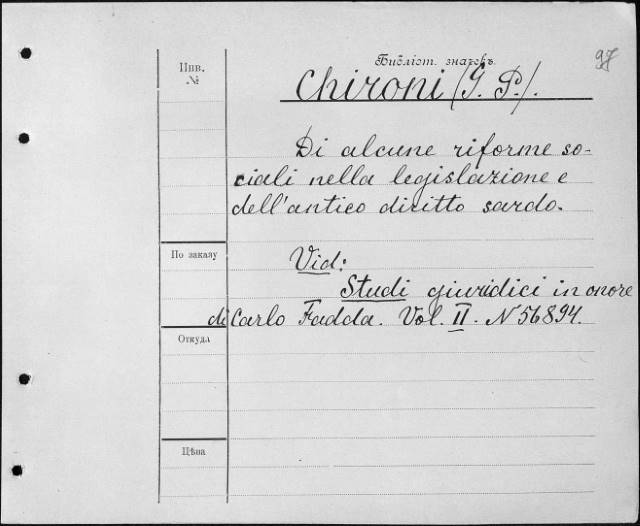 97
Инв.
№
Библіот. значекъ.
Chironi (G. P.).
Di alcune riforme so-
ciali nella legislazione e
dell'antico diritto sardo.
По заказу
Vid:
Studi giuridici in onore
di Carlo Fadda. Vol. II. N 56894.
Откуда
Цѣна